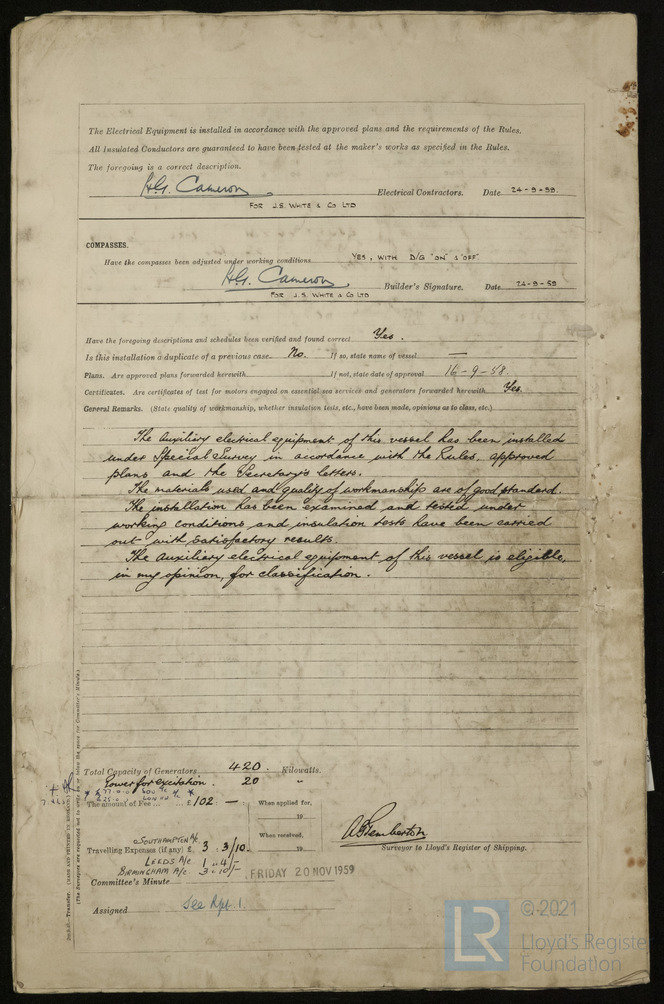 The Electrical Equipment is installed in accordance with the approved plans and the requirements of the Rules.
All Insulated Conductors are guaranteed to have been tested at the maker's works as specified in the Rules.
The foregoing is a correct description.
H.G. Cameron. Electrical Contractors. Date 24-9-59.
FOR J.S. WHITE & Co LTD
COMPASSES.
Have the compasses been adjusted under working conditions YES, WITH D/G "ON" & "OFF"
H.G. Cameron. Builder's Signature. Date 24-9-59
FOR J.S. WHITE & Co LTD
Have the foregoing descriptions and schedules been verified and found correct Yes.
Is this installation a duplicate of a previous case No. If so, state name of vessel —
Plans. Are approved plans forwarded herewith If not, state date of approval 16-9-58.
Certificates. Are certificates of test for motors engaged on essential sea services and generators forwarded herewith Yes.
General Remarks. (State quality of workmanship, whether insulation tests, etc., have been made, opinions as to class, etc.)
The auxiliary electrical equipment of this vessel has been installed
under Special Survey in accordance with the Rules, approved
plans and the Secretary's letters.
The materials used and quality of workmanship are of good standard.
The installation has been examined and tested under
working conditions and insulation tests have been carried
out with satisfactory results.
The auxiliary electrical equipment of this vessel is eligible,
in my opinion, for classification.
Total Capacity of Generators 420. Kilowatts.
Power for excitation. 20 "
The amount of Fee ... £102 —
When applied for,
19
When received,
19
SOUTHAMPTON A/c
Travelling Expenses (if any) £ 3.3/10
LEEDS A/c 1.4/-
BIRMINGHAM A/c 3-10/-
A Pemberton
Surveyor to Lloyd's Register of Shipping.
Committee's Minute FRIDAY 20 NOV 1959
Assigned See Rpt 1.
LR
© 2021
Lloyd's Register
Foundation